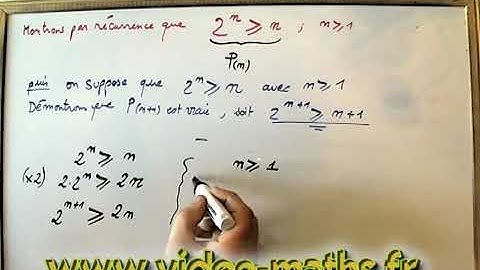 Montrons par récurrence que 2ⁿ ⩾ n ; n⩾1
P(n)
puis on suppose que 2ⁿ ⩾ n avec n⩾1
Démontrons que P(n+1) est vraie, soit 2ⁿ⁺¹ ⩾ n+1
2ⁿ ⩾ n
n ⩾ 1
(x2) 2·2ⁿ ⩾ 2n
2ⁿ⁺¹ ⩾ 2n
www.video-maths.fr